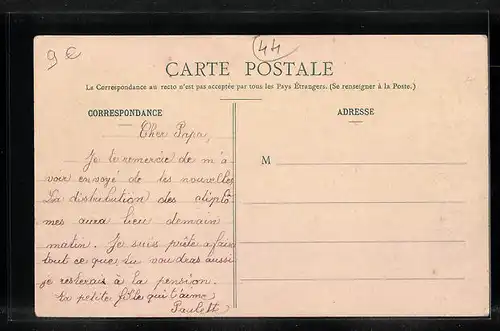 9 €
44
CARTE POSTALE
La Correspondance au recto n'est pas acceptée par tous les Pays Étrangers. (Se renseigner à la Poste.)
CORRESPONDANCE
Cher Papa,
Je te remercie de m'a
voir envoyé de tes nouvelles
La distribution des diplô
mes aura lieu demain
matin. Je suis prête a faire
tout ce que tu voudras aussi
je resterais à la pension.
ta petite fille qui t'aime
Paulette
ADRESSE
M